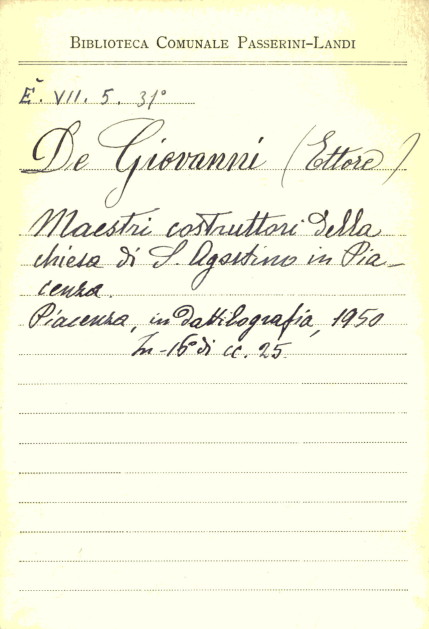 BIBLIOTECA COMUNALE PASSERINI-LANDI
Ẽ. VII. 5. 31°
De Giovanni (Ettore)
Maestri costruttori della
chiesa di S. Agostino in Pia-
cenza.
Piacenza, in dattilografia, 1950
In-16° di cc. 25.